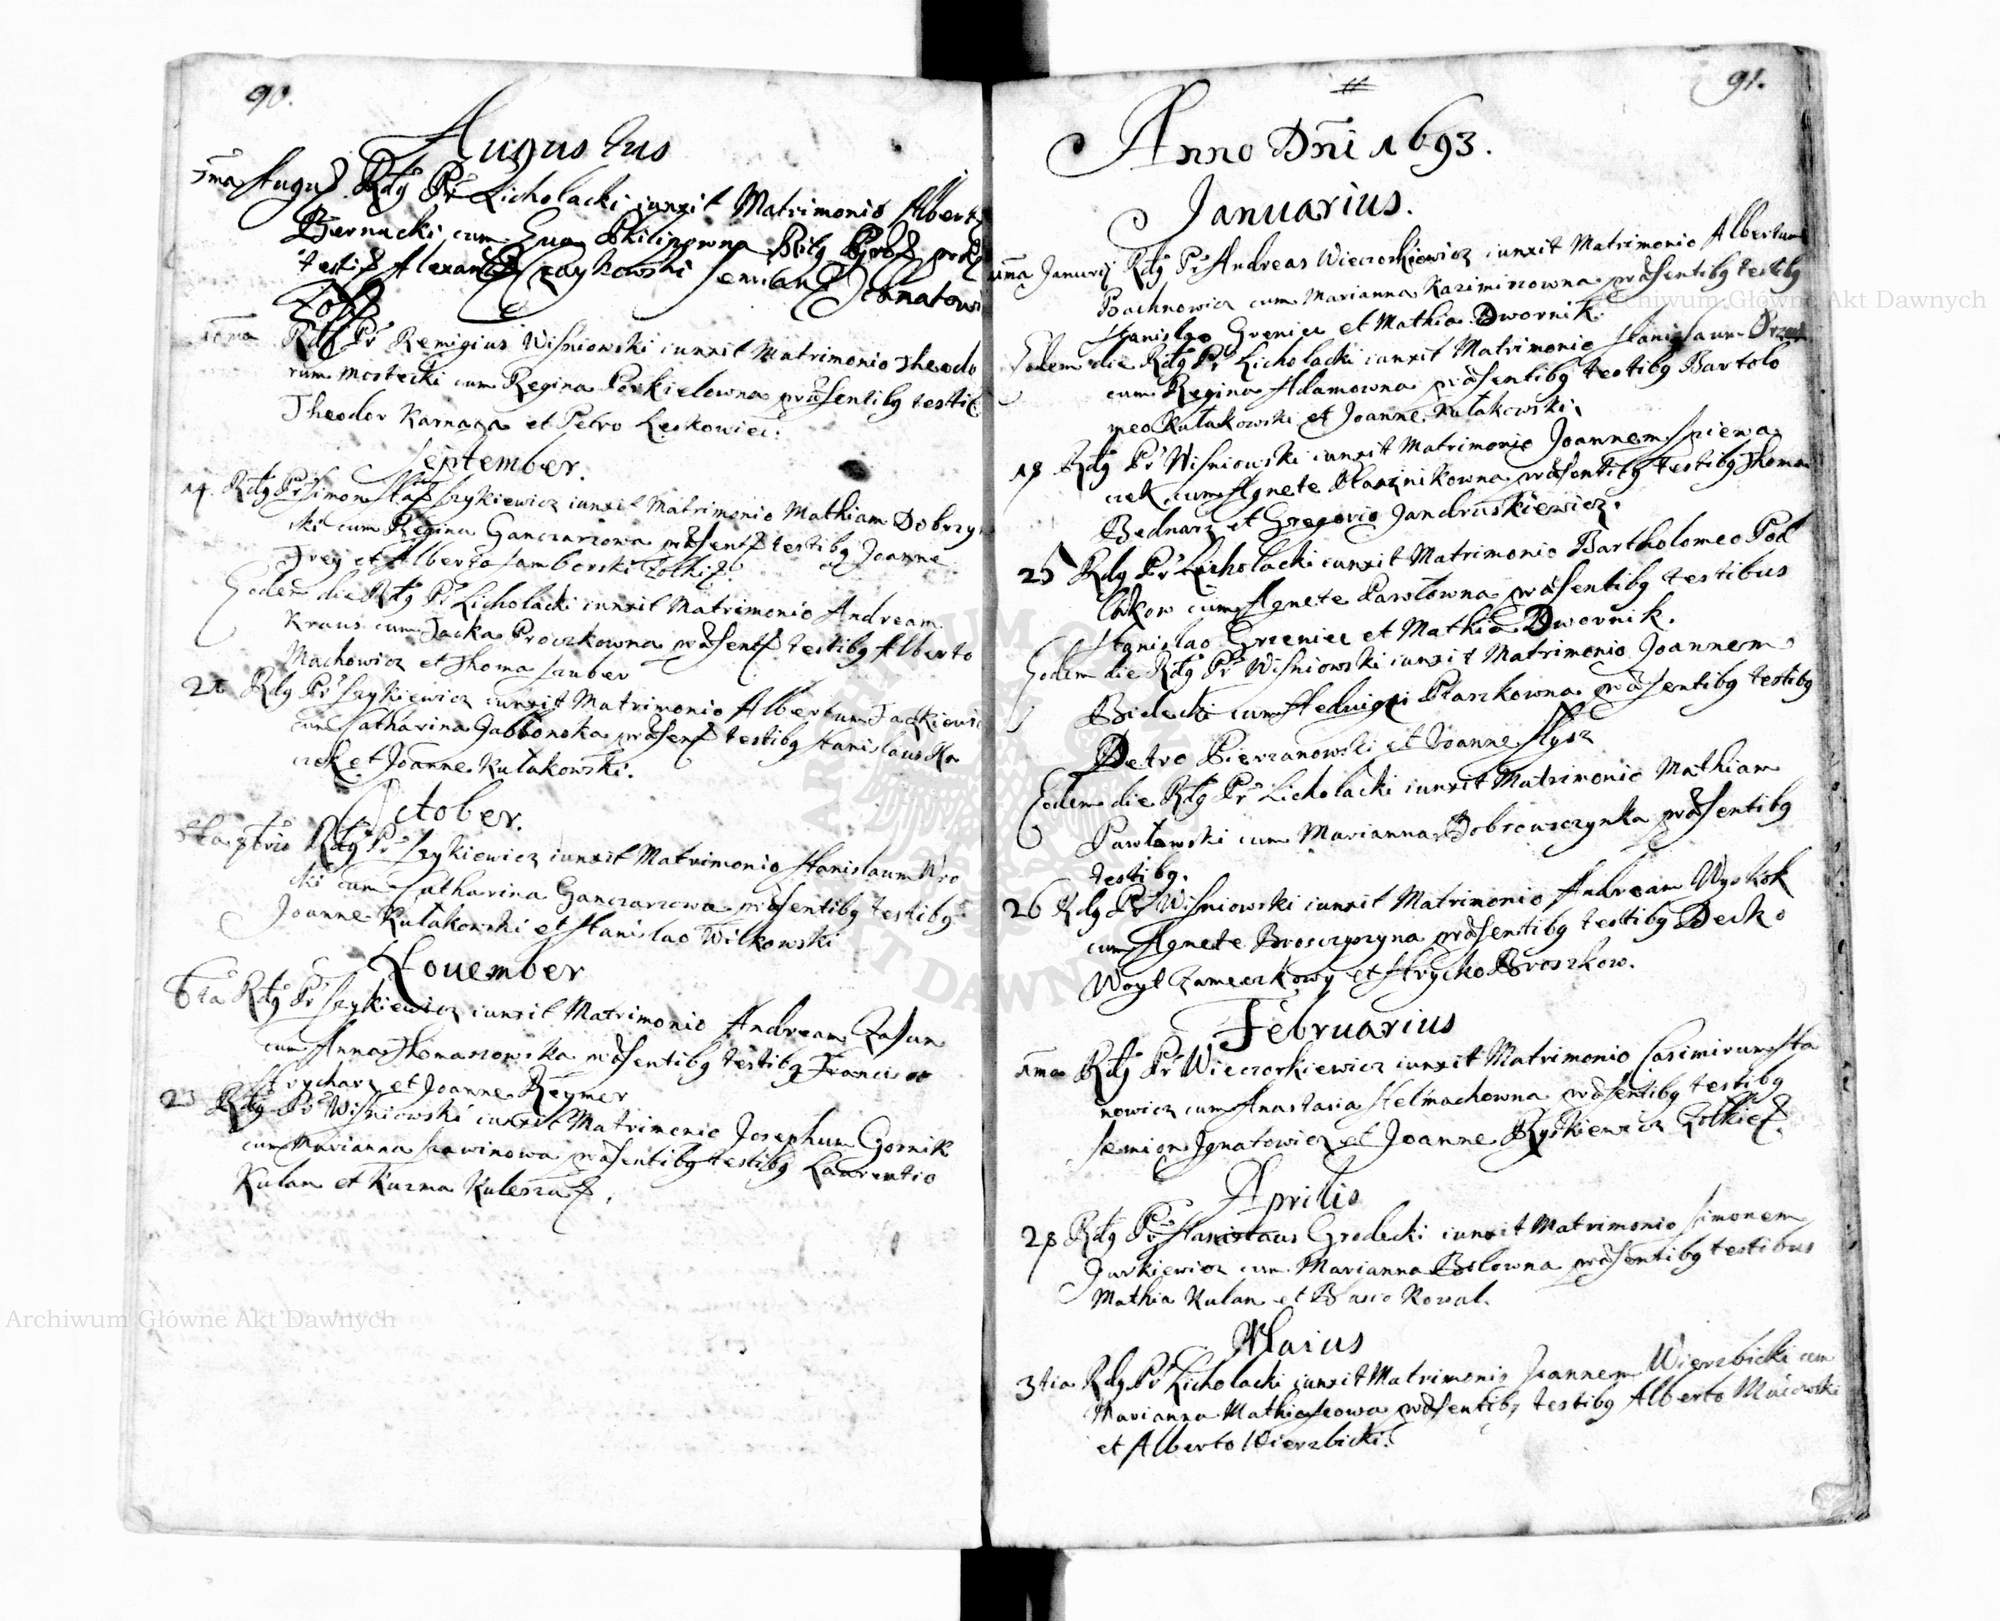 90.
Augustus
7ma Augus Rdg Pr Licholacki iunxit Matrimonio Albert
Biernacki cum Eua Philipowna
testi Alexand Czaykowski Ignatowi
Zolk
10ma Rdg Pr Remigius Wisniowski iunxit Matrimonio Theodo
rum Mostecki cum Regina Porkielowna præsentibg testi
Theodor Karnaga et Petro Leskowicz:
September.
14. Rdg Pr Simon Szykiewicz iunxit Matrimonio Mathiam Dobrzyn
ski cum Regina Ganczarzowa præsent testibg Joanne
Frey et Alberto Samborski Zolki
Eodem die Rdg Pr Licholacki iunxit Matrimonio Andream
Kraus cum Jacka Proczkowna præsent testibg Alberto
Machowicz et Thoma Sauber
21 Rdg Pr Szykiewicz iunxit Matrimonio Albertum Jackiewic
cum Catharina Jabłonska præsent testibg Stanislaus
czek et Joanne Kułakowski.
October.
Rdg Pr Szykiewicz iunxit Matrimonio Stanislaum Wro
cki cum Catharina Ganczarzowa præsentibg testibg
Joanne Kułakowski et Stanislao Wilkowski
Nouember
6ta Rdg Pr Szykiewicz iunxit Matrimonio Andream Zasun
cum Anna Thomaszowska præsentibg testibg Francisco
Strycharz et Joanne Reymer
23 Rdg Pr Wisniowski iunxit Matrimonio Josephum Gornik
cum Marianna Sawinowa præsentibg testibg Laurentio
Kulan et Kuzma Kulesza
91.
Anno Dñi 1693.
Januarius.
1ma Januarij Rdg Pr Andreas Wieczorkiewicz iunxit Matrimonio Albertum
Bachnowicz cum Marianna Kazimirzowna præsentibg testibg
Stanislao Greniec et Mathia Dwornik.
Eodem die Rdg Pr Licholacki iunxit Matrimonio Stanislaum
cum Regina Adamowna præsentibg testibg Bartolo
meo Kułakowski et Joanne Kułakowski.
18 Rdg Pr Wisniowski iunxit Matrimonio Joannem Spiewa
czek cum Agnete Płaznikowna præsentibg testibg Thoma
Bednarz et Gregorio Jandruskiewicz.
25 Rdg Pr Licholacki iunxit Matrimonio Bartholomeo Pod
cum Agnete Pawłowna præsentibg testibus
Stanislao Grzeniec et Mathia Dwornik.
Eodem die Rdg Pr Wisniowski iunxit Matrimonio Joannem
Bielecki cum Hedwigi Ptaszkowna præsentibg testibg
Petro Pierzanowski et Joanne Slysz
Eodem die Rdg Pr Licholacki iunxit Matrimonio Mathiam
Pawławski cum Marianna Dobrowszczynka præsentibg
testibg.
26 Rdg Pr Wisniowski iunxit Matrimonio Andream Wyskok
cum Agnete Broszczyzyna præsentibg testibg Decko
Woyt Zameczkowy et Hrycko Broszkow.
Februarius
1ma Rdg Pr Wieczorkiewicz iunxit Matrimonio Casimirum Sta
nowicz cum Anastasia Stelmachowna præsentibg testibg
Semion Ignatowicz et Joanne Ryskiewicz Zolkie
Aprilis
28 Rdg Pr Stanislaus Grodecki iunxit Matrimonio Simonem
Jurkiewicz cum Marianna Bolowna præsentibg testibus
Mathia Kulan et Basio Kowal.
Maius
3tia Rdg Pr Licholacki iunxit Matrimonio Joannem Wierzbicki cum
Marianna Mathiaszowa præsentibg testibg Alberto
et Alberto Wierzbicki.
Archiwum Główne Akt Dawnych
Archiwum Główne Akt Dawnych
ARCHIWUM GŁÓWNE AKT DAWNYCH